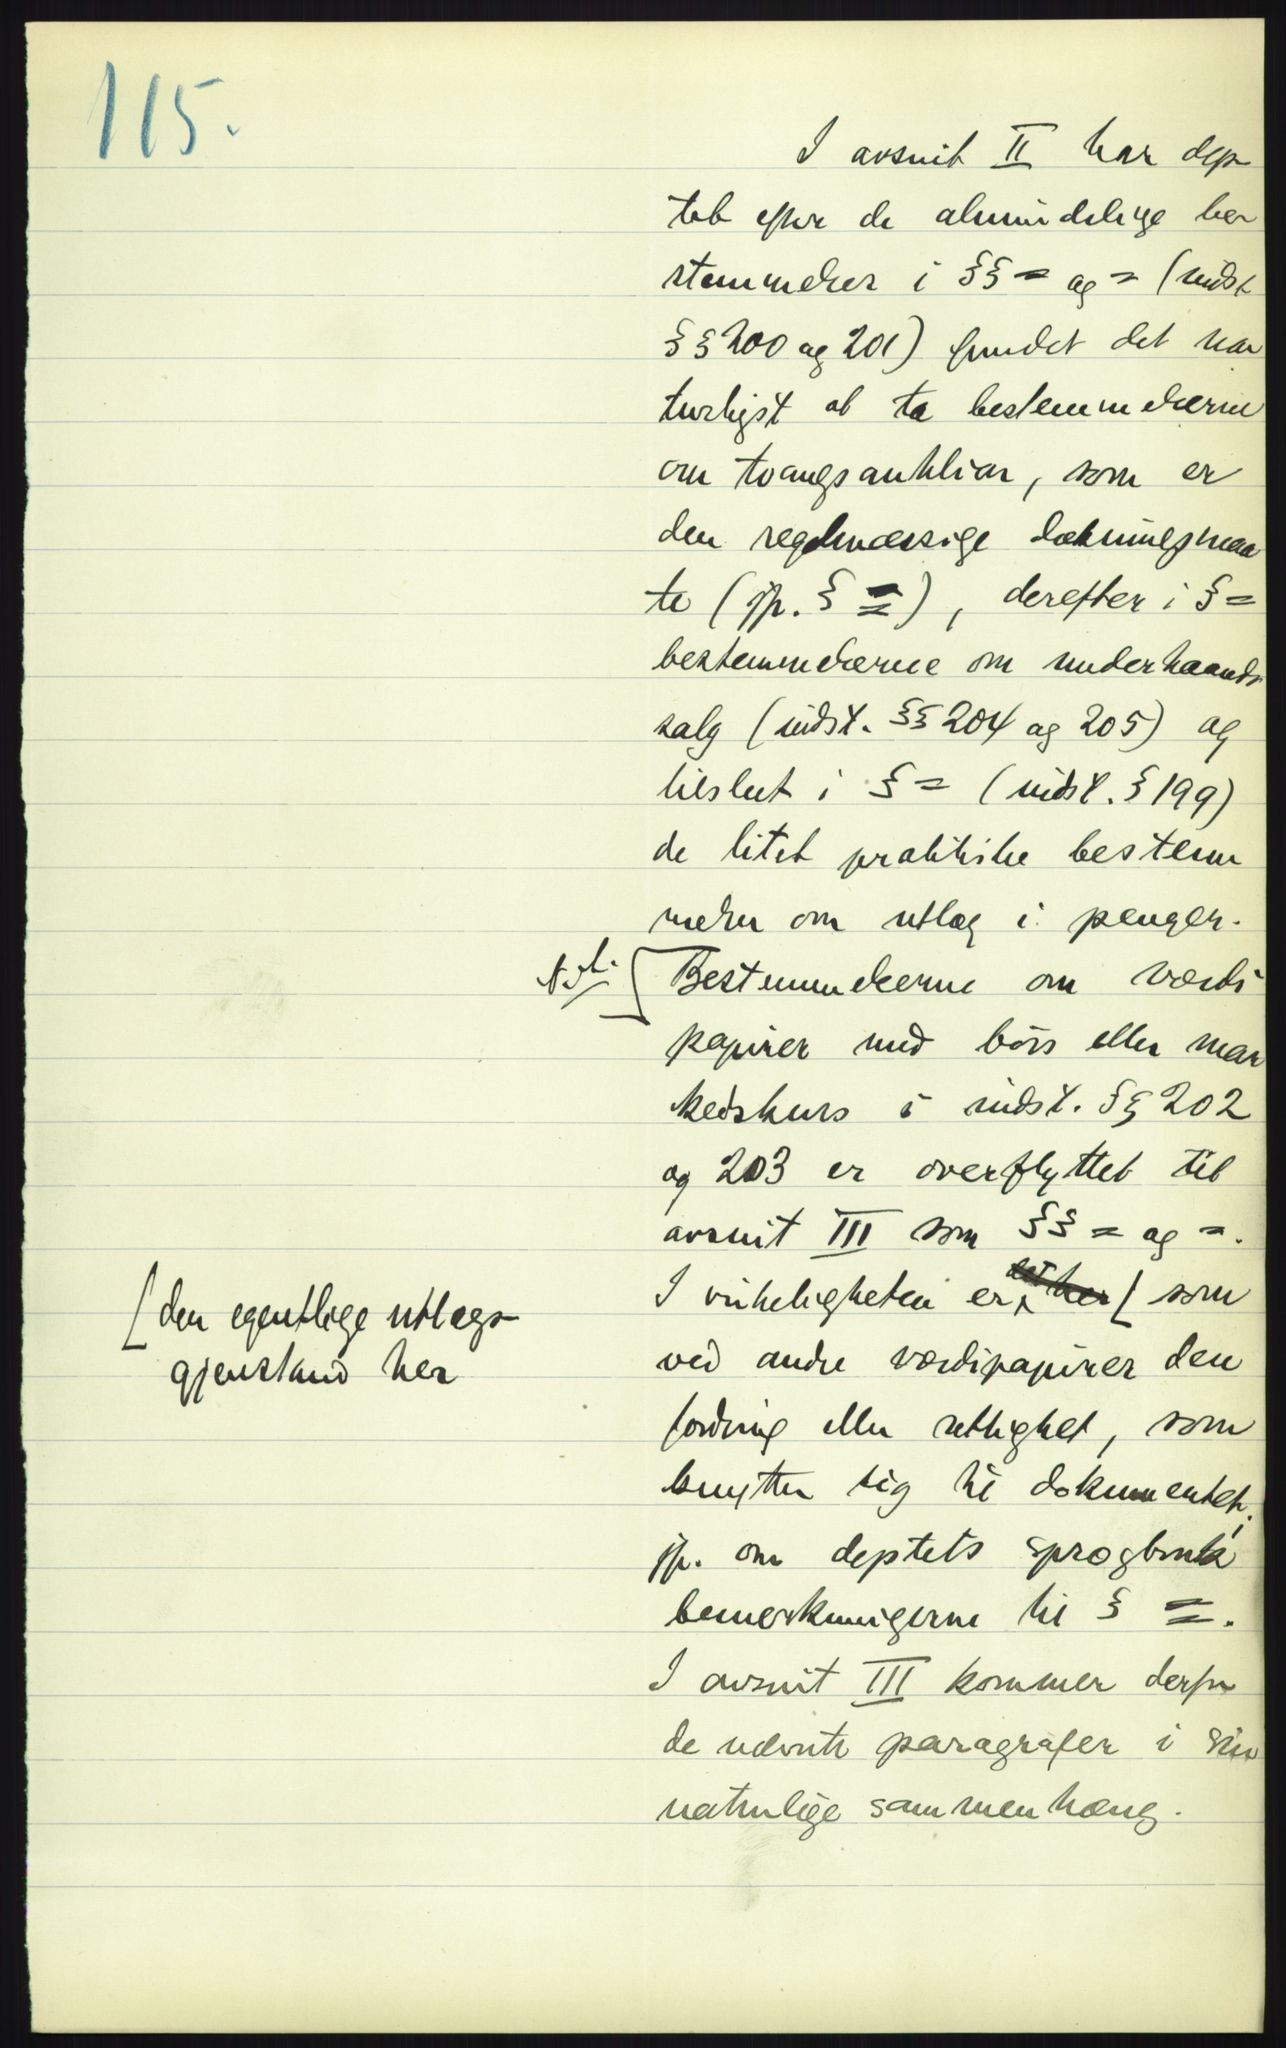 115.
I avsnit II har dep
tet efter de almindelige be
stemmelser i §§ = og = (indst
§§ 200 og 201) fundet det na
turligst at ta bestemmelserne
om tvangsauktion, som er
den regelmæssige dækningsmaa
te (jfr. § =), derefter i § =
bestemmelserne om underhaands
salg (indst. §§ 204 og 205) og
tilslut i § = (indst. § 199)
de litet praktiske bestem
melser om utlæg i penger.
[ Bestemmelserne om værdi
papirer med børs eller mar
kedskurs i indst. §§ 202
og 203 er overflyttet til
avsnit III som §§ = og =.
I virkeligheten er det her [ som
[ den egentlige utlægs-
gjenstand her
ved andre værdipapirer den
fordring eller rettighet, som
knytter sig til dokumentet;
jfr. om deptets sprogbruk
bemerkningerne til § =.
I avsnit III kommer derfor
de nævnte paragrafer i sin
naturlige sammenhæng.